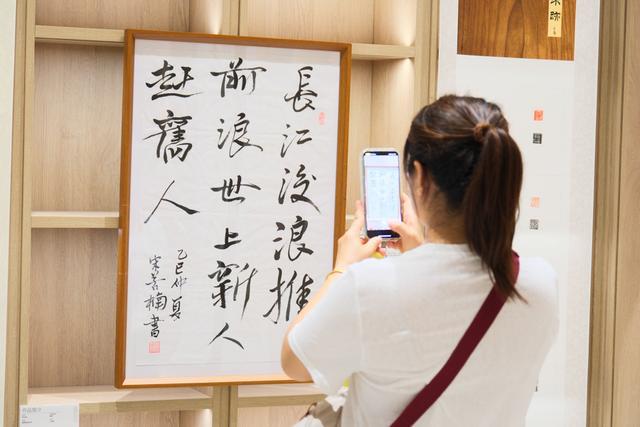 長江後浪推
前浪世上新人
赶舊人
乙巳仲夏
楠書